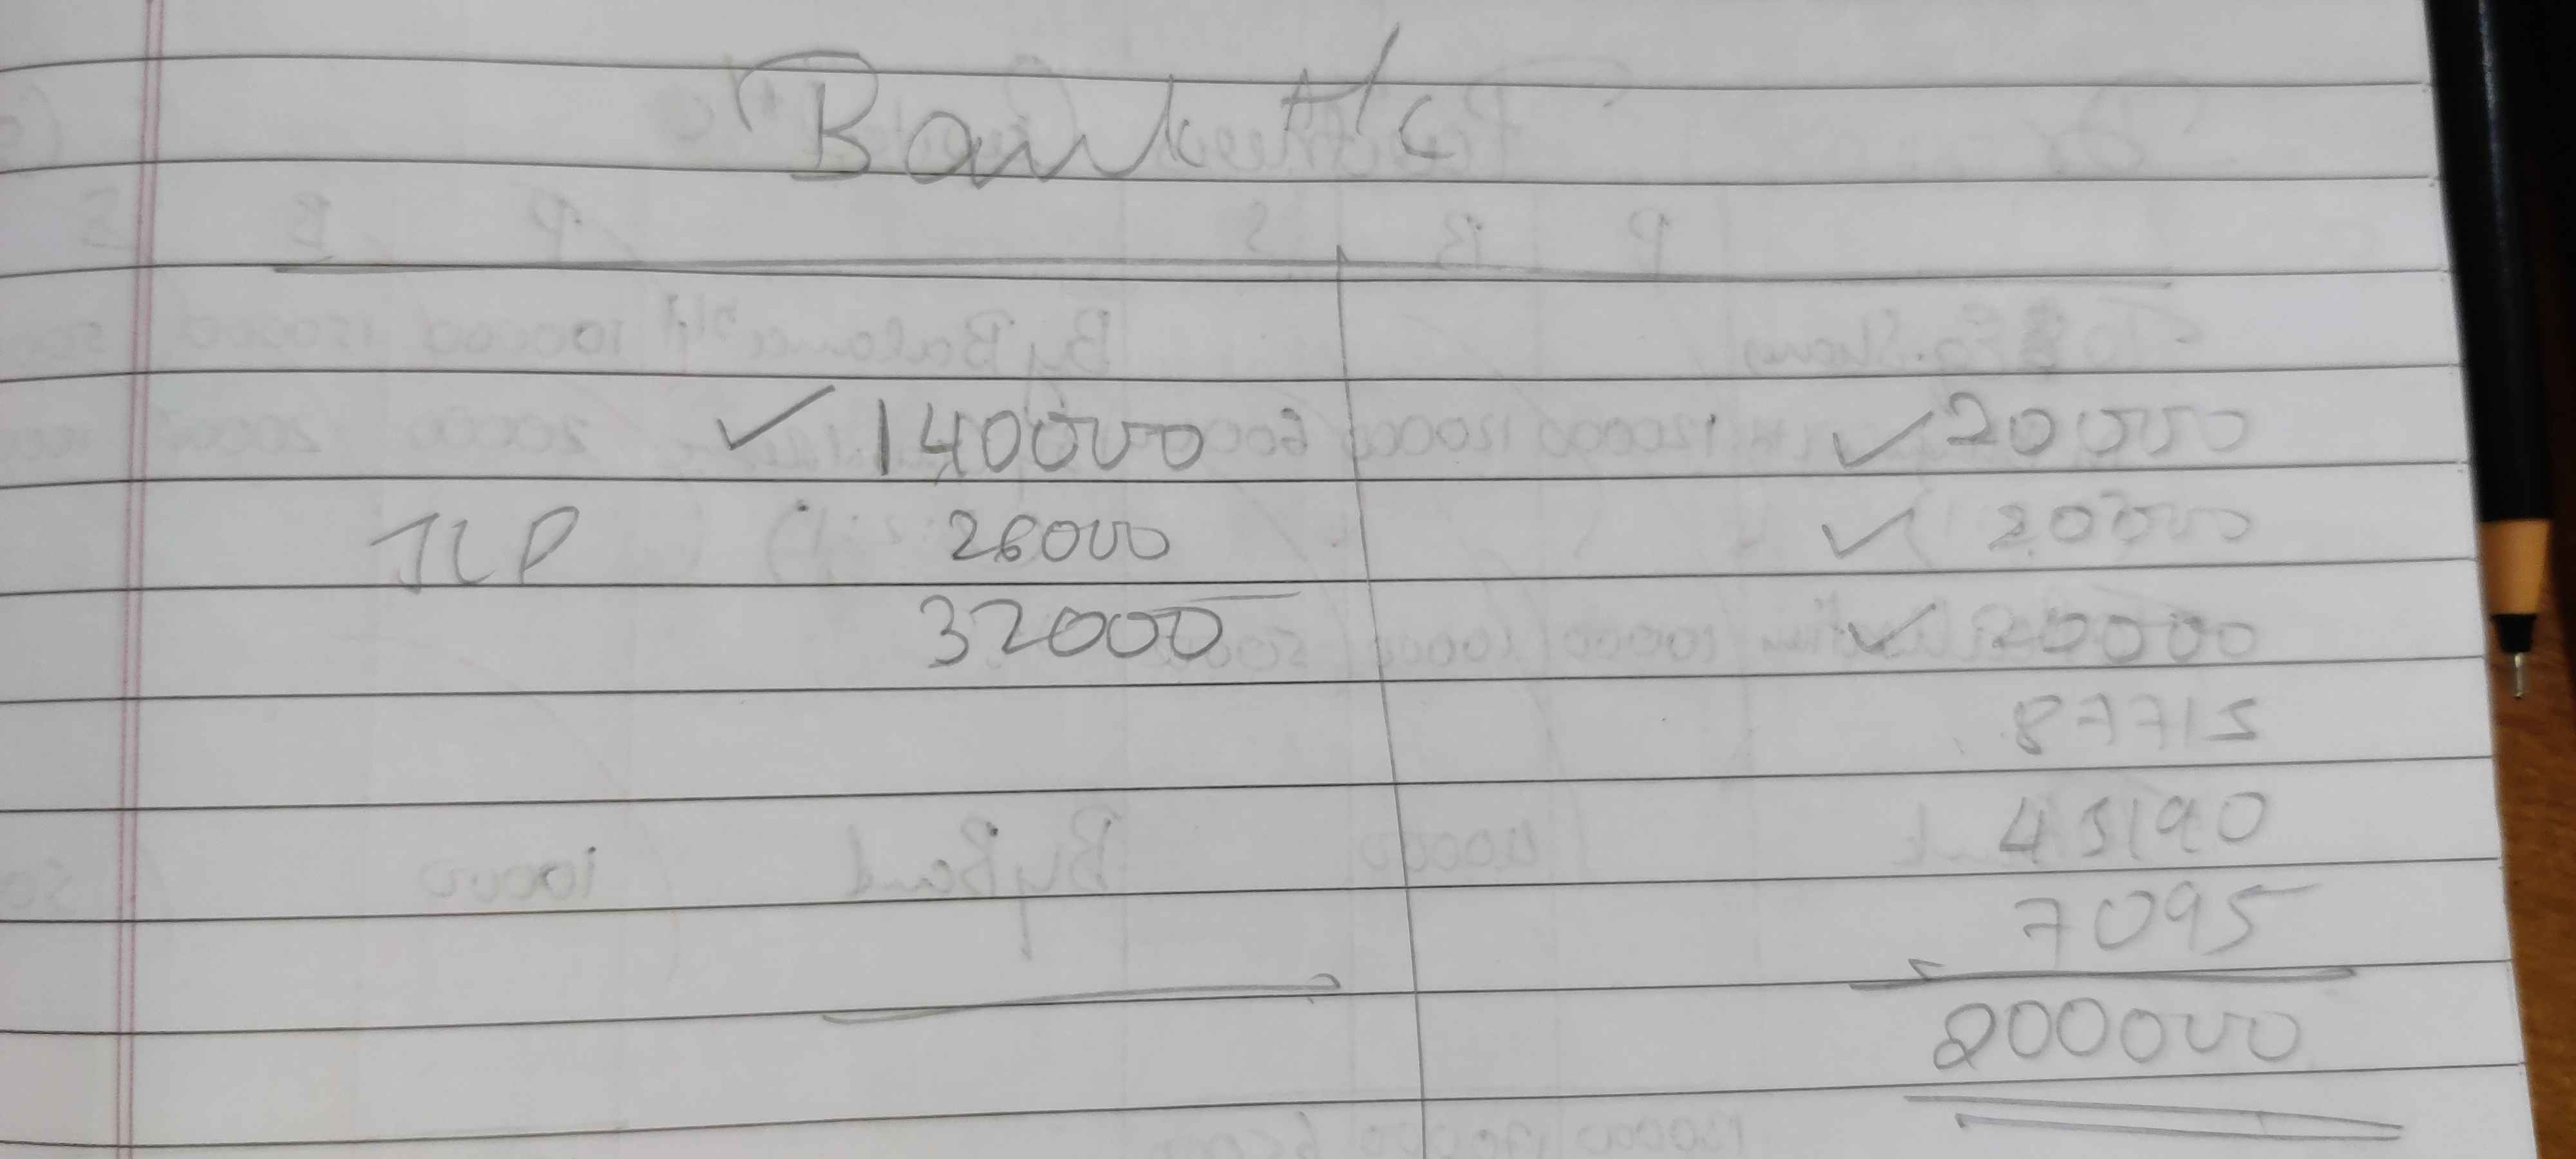 Bank A/c
✓ 140000 ✓ 20000
JLP 28000 ✓ 20000
32000 ✓ 20000
87715
45190
7095
200000